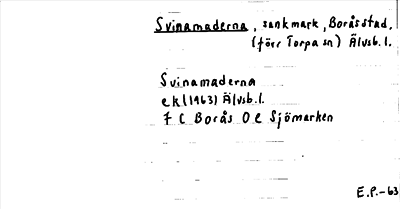 Svinamaderna, sankmark, Borås stad,
(förr Torpa sn) Älvsb. l.
Svinamaderna
ek (1963) Älvsb. l.
7 C Borås 0 e Sjömarken
E.P.-63